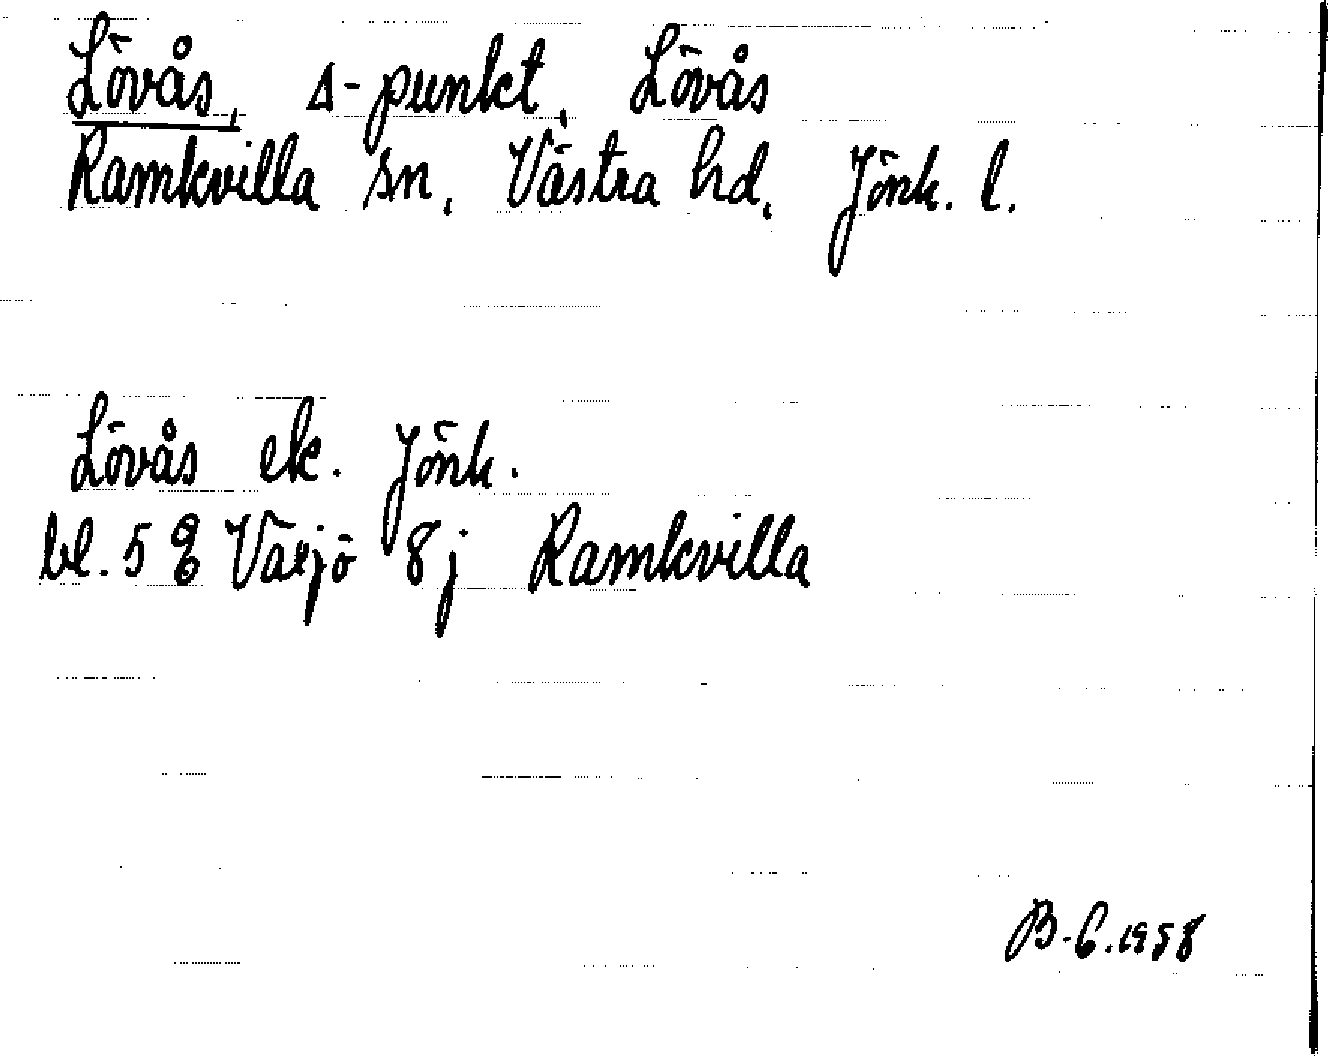 Lövås, Δ-punkt, Lövås
Ramkvilla sn, Västra hd, Jönk. l.
Lövås ek. Jönk.
bl. 5 E Växjö 8j Ramkvilla
B-G.1958